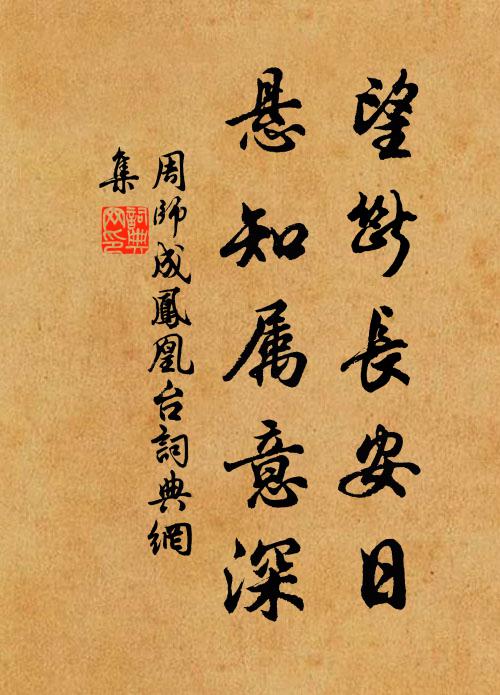 望断長安日
悬知属意深
周師成鳳凰台詞典網
集
詞典網印